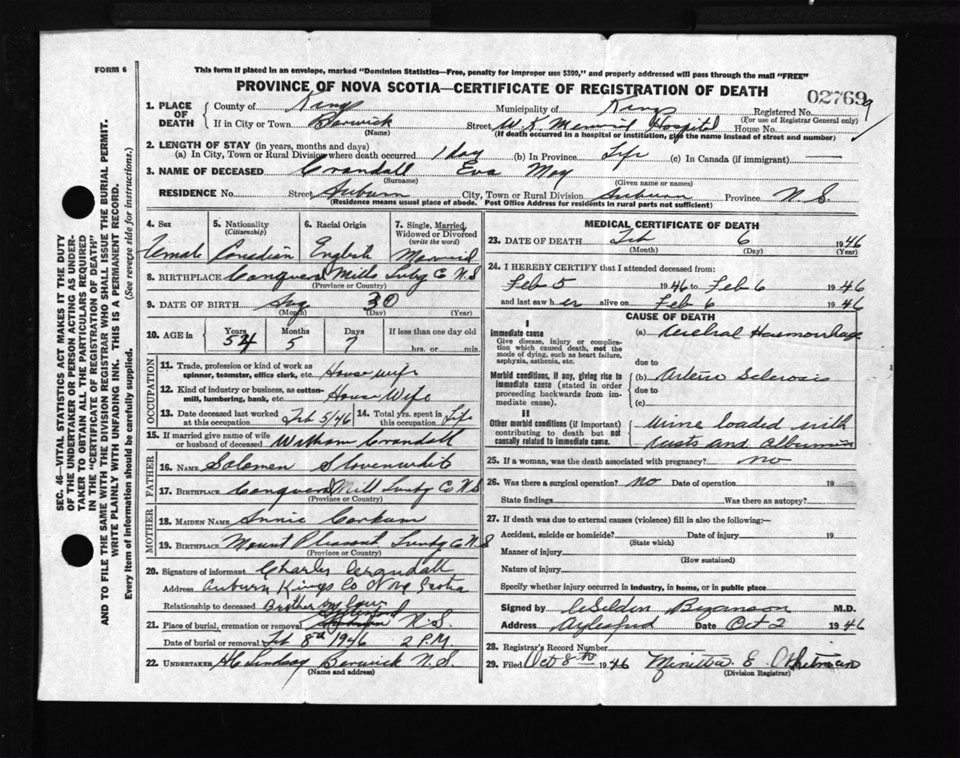 FORM 6
This form if placed in an envelope, marked "Dominion Statistics—Free, penalty for improper use $300," and properly addressed will pass through the mail "FREE"
PROVINCE OF NOVA SCOTIA—CERTIFICATE OF REGISTRATION OF DEATH
02769
9
1. PLACE OF DEATH
County of Kings Municipality of Kings Registered No.
(For use of Registrar General only)
If in City or Town Berwick Street W. K. Memorial Hospital House No.
(Name) (If death occurred in a hospital or institution, give the name instead of street and number)
2. LENGTH OF STAY (in years, months and days)
(a) In City, Town or Rural Division where death occurred 1 day (b) In Province Life (c) In Canada (if immigrant) —
3. NAME OF DECEASED Crandall Eva May
(Surname) (Given name or names)
RESIDENCE No. Street Auburn City, Town or Rural Division Auburn Province N.S.
(Residence means usual place of abode. Post Office Address for residents in rural parts not sufficient)
4. Sex
Female
5. Nationality
(Citizenship)
Canadian
6. Racial Origin
English
7. Single, Married, Widowed or Divorced
(write the word)
Married
8. BIRTHPLACE Conquer Mills Luby Co N.S
(Province or Country)
9. DATE OF BIRTH Aug 30
(Month) (Day) (Year)
10. AGE in Years Months Days If less than one day old
54 5 7 hrs. or min.
OCCUPATION
11. Trade, profession or kind of work as spinner, teamster, office clerk, etc. House wife
12. Kind of industry or business, as cotton-mill, lumbering, bank, etc. House Wife
13. Date deceased last worked at this occupation Feb 5/46 14. Total yrs. spent in this occupation Life
15. If married give name of wife or husband of deceased William Crandall
FATHER
16. NAME Solomen
17. BIRTHPLACE Conquer Mill Lunby Co N.S
(Province or Country)
MOTHER
18. MAIDEN NAME Annie Corkum
19. BIRTHPLACE Mount Pleasant Lunby Co N S
(Province or Country)
20. Signature of informant Charles Crandall
Address Auburn Kings Co Nova Scotia
Relationship to deceased Brother in law
21. Place of burial, cremation or removal N.S.
Date of burial or removal Feb 8th 1946 2 P.M.
22. UNDERTAKER Lindsay Berwick N.S.
(Name and address)
MEDICAL CERTIFICATE OF DEATH
23. DATE OF DEATH Feb 6 1946
(Month) (Day) (Year)
24. I HEREBY CERTIFY that I attended deceased from:
Feb 5 1946 to Feb 6 1946
and last saw her alive on Feb 6 1946
CAUSE OF DEATH
I
Immediate cause
Give disease, injury or complication which caused death, not the mode of dying, such as heart failure, asphyxia, asthenia, etc.
(a) Cerebral Haemorrhage
due to
Morbid conditions, if any, giving rise to immediate cause (stated in order proceeding backwards from immediate cause).
(b) Arterio Sclerosis
due to
(c)
II
Other morbid conditions (if important) contributing to death but not causally related to immediate cause.
Urine loaded with
Casts and Albumin
25. If a woman, was the death associated with pregnancy? no
26. Was there a surgical operation? No Date of operation 19
State findings Was there an autopsy?
27. If death was due to external causes (violence) fill in also the following:—
Accident, suicide or homicide? Date of injury 19
(State which)
Manner of injury
(How sustained)
Nature of injury
Specify whether injury occurred in industry, in home, or in public place
Signed by Bezanson M.D.
Address Aylesford Date Oct 2 1946
28. Registrar's Record Number
29. Filed Oct 8th 1946 E.
(Division Registrar)
SEC. 46—VITAL STATISTICS ACT MAKES IT THE DUTY
OF THE UNDERTAKER OR PERSON ACTING AS UNDER-
TAKER TO OBTAIN ALL THE PARTICULARS REQUIRED
IN THE "CERTIFICATE OF REGISTRATION OF DEATH"
AND TO FILE THE SAME WITH THE DIVISION REGISTRAR WHO SHALL ISSUE THE BURIAL PERMIT.
WRITE PLAINLY WITH UNFADING INK. THIS IS A PERMANENT RECORD.
Every item of information should be carefully supplied. (See reverse side for instructions.)